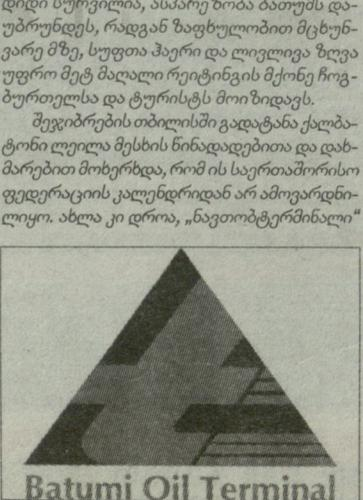 დიდი სურვილია, ასპარეზობა ბათუმს და-
უბრუნდეს, რადგან ზაფხულობით მცხუნ-
ვარე მზე, სუფთა ჰაერი და ლივლივა ზღვა
უფრო მეტ მაღალი რეიტინგის მქონე ჩოგ-
ბურთელსა და ტურისტს მოიზიდავს.
შეჯიბრების თბილისში გადატანა ქალბა-
ტონი ლეილა მესხის წინადადებითა და დახ-
მარებით მოხერხდა, რომ ის საერთაშორისო
ფედერაციის კალენდრიდან არ ამოვარდნი-
ლიყო. ახლა კი დროა, „ნავთობტერმინალი“
Batumi Oil Terminal